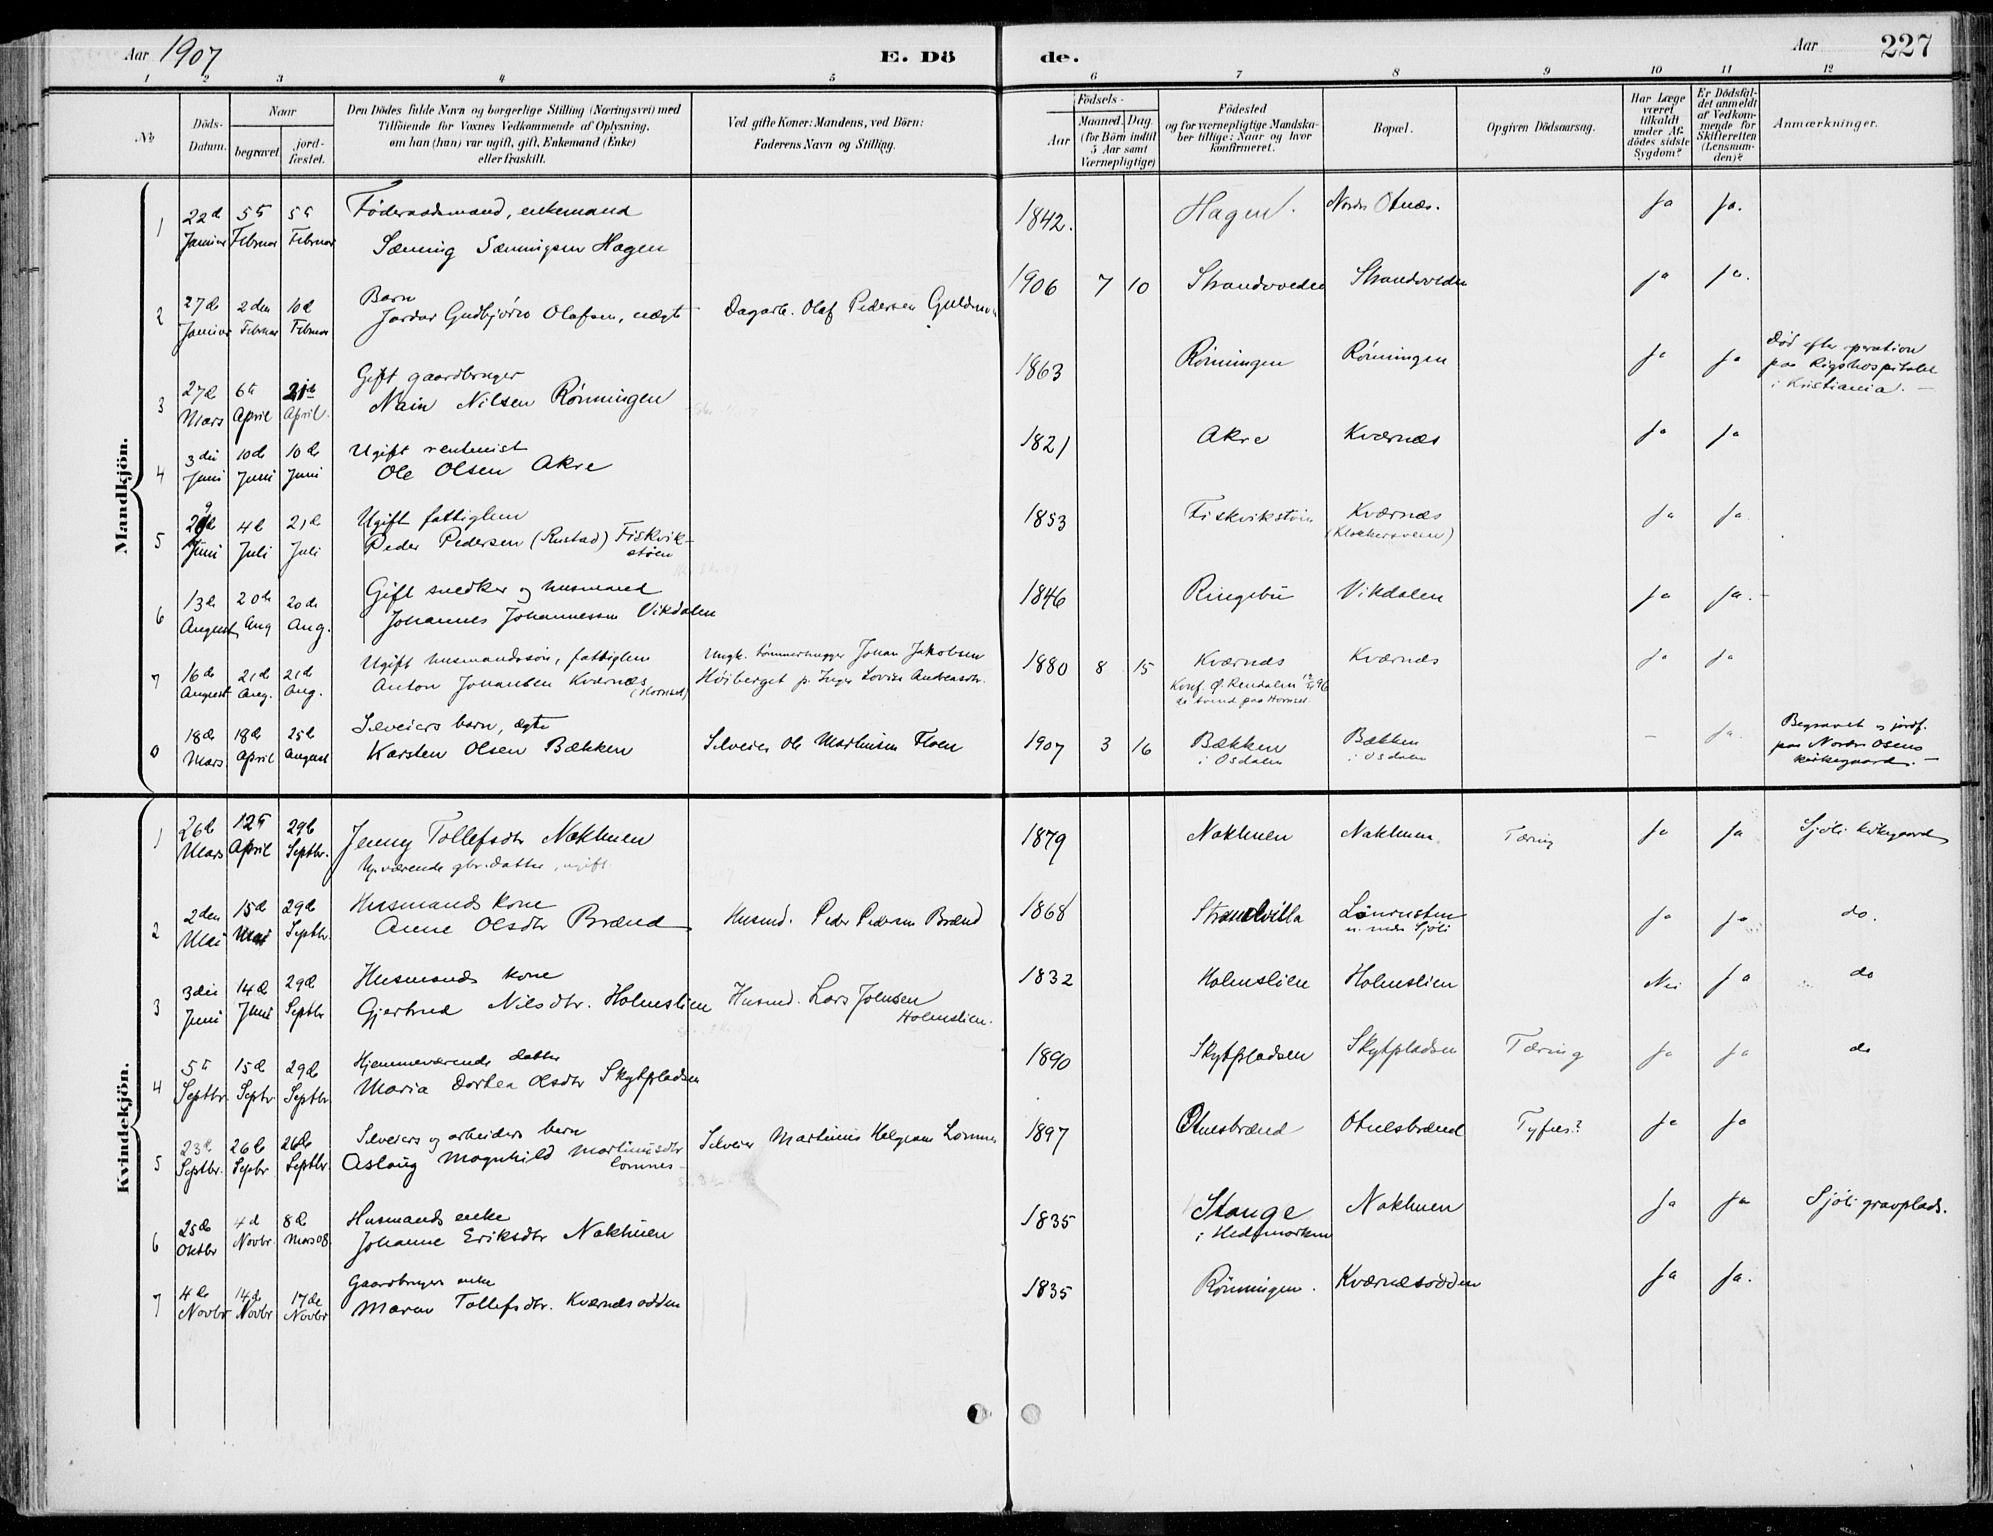 Aar 1907
E. Dö
de.
Aar
227
1 2 3 4 5 6 7 8 9 10 11 12
No
Döds-Datum.
Naar
begravet
jord-fæstet.
Den Dödes fulde Navn og borgerlige Stilling (Næringsvei) med
Tilföiende for Voxnes Vedkommende af Oplysning,
om han (hun) var ugift, gift, Enkemand (Enke)
eller fraskilt.
Ved gifte Koner: Mandens, ved Börn:
Faderens Navn og Stilling.
Födsels-
Aar
Maaned. Dag.
(for Börn indtil
5 Aar samt
Værnepligtige)
Födested
og for værnepligtige Mandska-
ber tillige: Naar og hvor
konfirmeret.
Bopæl.
Opgiven Dödsaarsag.
Har Læge
været
tilkaldt
under Af-
dödes sidste
Sygdom?
Er Dödsfal-
det anmeldt
af Vedkom-
mende for
Skifteretten
(Lensman-
den)?
Anmærkninger.
Mandkjön.
1 22d Januar 5t Februar 5t Februar Föderaadsmand, enkemand
Sæming Sæmingsen Hagen
1842. Hagen. Nordre Otnæs. Ja Ja.
2 27d Januar 2den Februar 10d Februar Barn
Jardar Gudbjörn Olafsen, ægte Dagarb. Olaf Pedersen
1906 7 10 Strandvolden Strandvolden Ja Ja.
3 27d Mars 6t April 21d April Gift gaardbruger
Nain Nilsen Rönningen
1863 Rönningen Rönningen Ja Ja Död efter operation
paa Rigshospitalet
i Kristiania. -
4 3die Juni 10d Juni 10d Juni Ugift rentenist
Ole Olsen Akre
1821 Akre Kværnæs Ja Ja
5 29d Juni 4d Juli 21d Juli Ugift fattiglem
Peder Pedersen (Rustad) Fiskvik-
stöen
1853 Fiskvikstöen Kværnæs Ja Ja.
6 13d August 20d Aug 20d Aug. Gift snedker og husmand
Johannes Johannessen Vikdalen
1846 Ringebu Vikdalen Ja Ja. -
7 16d August 21d Aug. 21d Aug. Ugift husmandssön, fattiglem
Anton Johansen Kværnæs (Hornset)
Ungk. tömmerhugger Johan Jakobsen
Höiberget p. Inger Lovise Andreasdtr.
1880 8 15 Kværnæs Kværnæs Ja Ja
Konf. Ø. Rendalen 96
0 18d Mars 18d April 25d August Selveiers barn, ægte
Karsten Olsen Bækken Selveier Ole Martinsen Floen
1907 3 16 Bækken
i Osdalen Bækken
i Osdalen - Ja. Begravet og jordf.
paa Nordre Osens
kirkegaard. -
Kvindekjön.
1 26d Mars 12t April 29d Septbr. Jenny Tollefsdtr Nakhuen
Hj.værende gbr.datter, ugift
1879 Nakhuen Nakhuen Tæring Ja Ja Sjöli kirkegaard
2 2den Mai 15d Mai 29d Septbr. Husmands kone
Anne Olsdtr Brænd Husmd. Peder Pedersen Brænd
1868 Strandvilla Ja Ja do.
3 3die Juni 14d Juni 29d Septbr Husmands kone
Gjertrud Nilsdtr. Holmslien Husmd. Lars Joensen
Holmslien.
1832 Holmslien Holmslien Nei Ja do
4 5t Septbr. 15d Septbr. 29d Septbr. Hjemmeværende datter
Maria Dorthea Olsdtr Skytpladsen
1890 Skytpladsen Skytpladsen Tæring Ja Ja do
5 23d Septbr. 26d Septbr 26d Septbr Selveiers og arbeiders barn
Aslaug Magnhild Martinusdtr
Lomnes- Selveier Martinus Helgesen Lomnes
1897 Otnesbrænd Otnesbrænd Tyfus? Ja Ja
6 25d Oktbr 4d Novbr. 8d Mars 08. Husmands enke
Johanne Eriksdtr Nakhuen
1835 Stange
i Hedemarken Nakhuen Ja Ja Sjöli gravplads.
7 4d Novbr 14d Novbr 17de Novbr Gaardbrugers enke
Maren Tollefsdtr. Kværnæsodden
1835 Rönningen. Kværnæsodden Ja Ja.